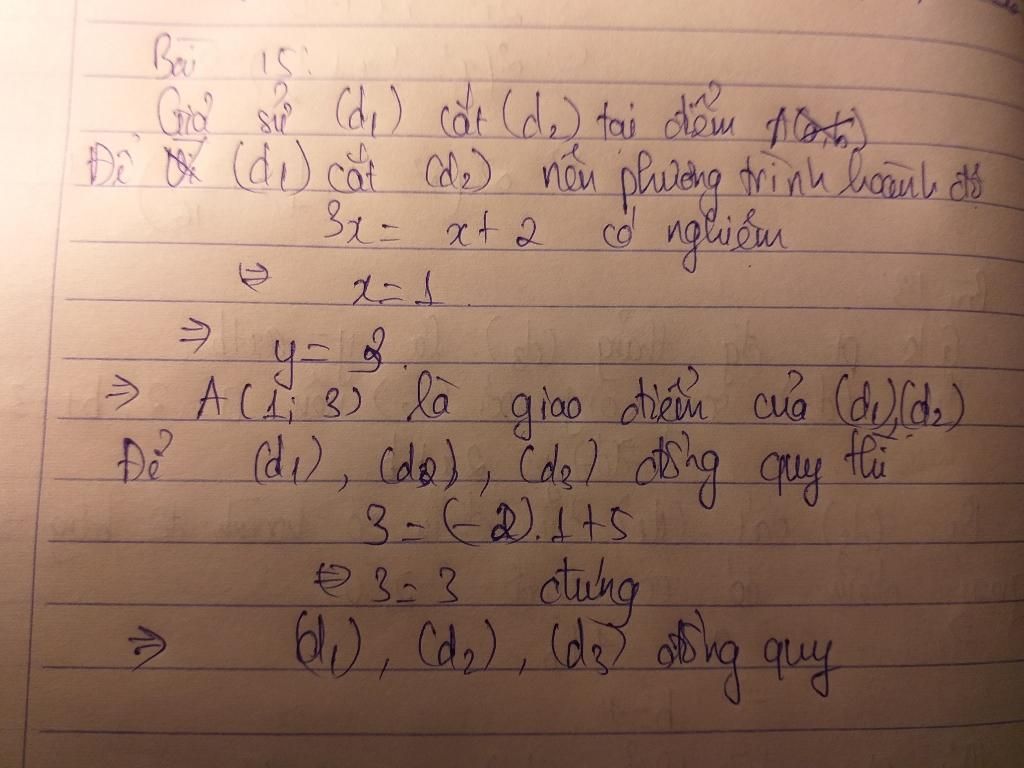 Bài 15:
Giả sử (d₁) cắt (d₂) tại điểm
Để (d₁) cắt (d₂) nên phương trình hoành độ
3x = x + 2 có nghiệm
⇔ x = 1
⇒ y = 3.
⇒ A(1; 3) là giao điểm của (d₁), (d₂)
Để (d₁), (d₂), (d₃) đồng quy thì
3 = (-2).1+5
⇔ 3 = 3 đúng
⇒ (d₁), (d₂), (d₃) đồng quy